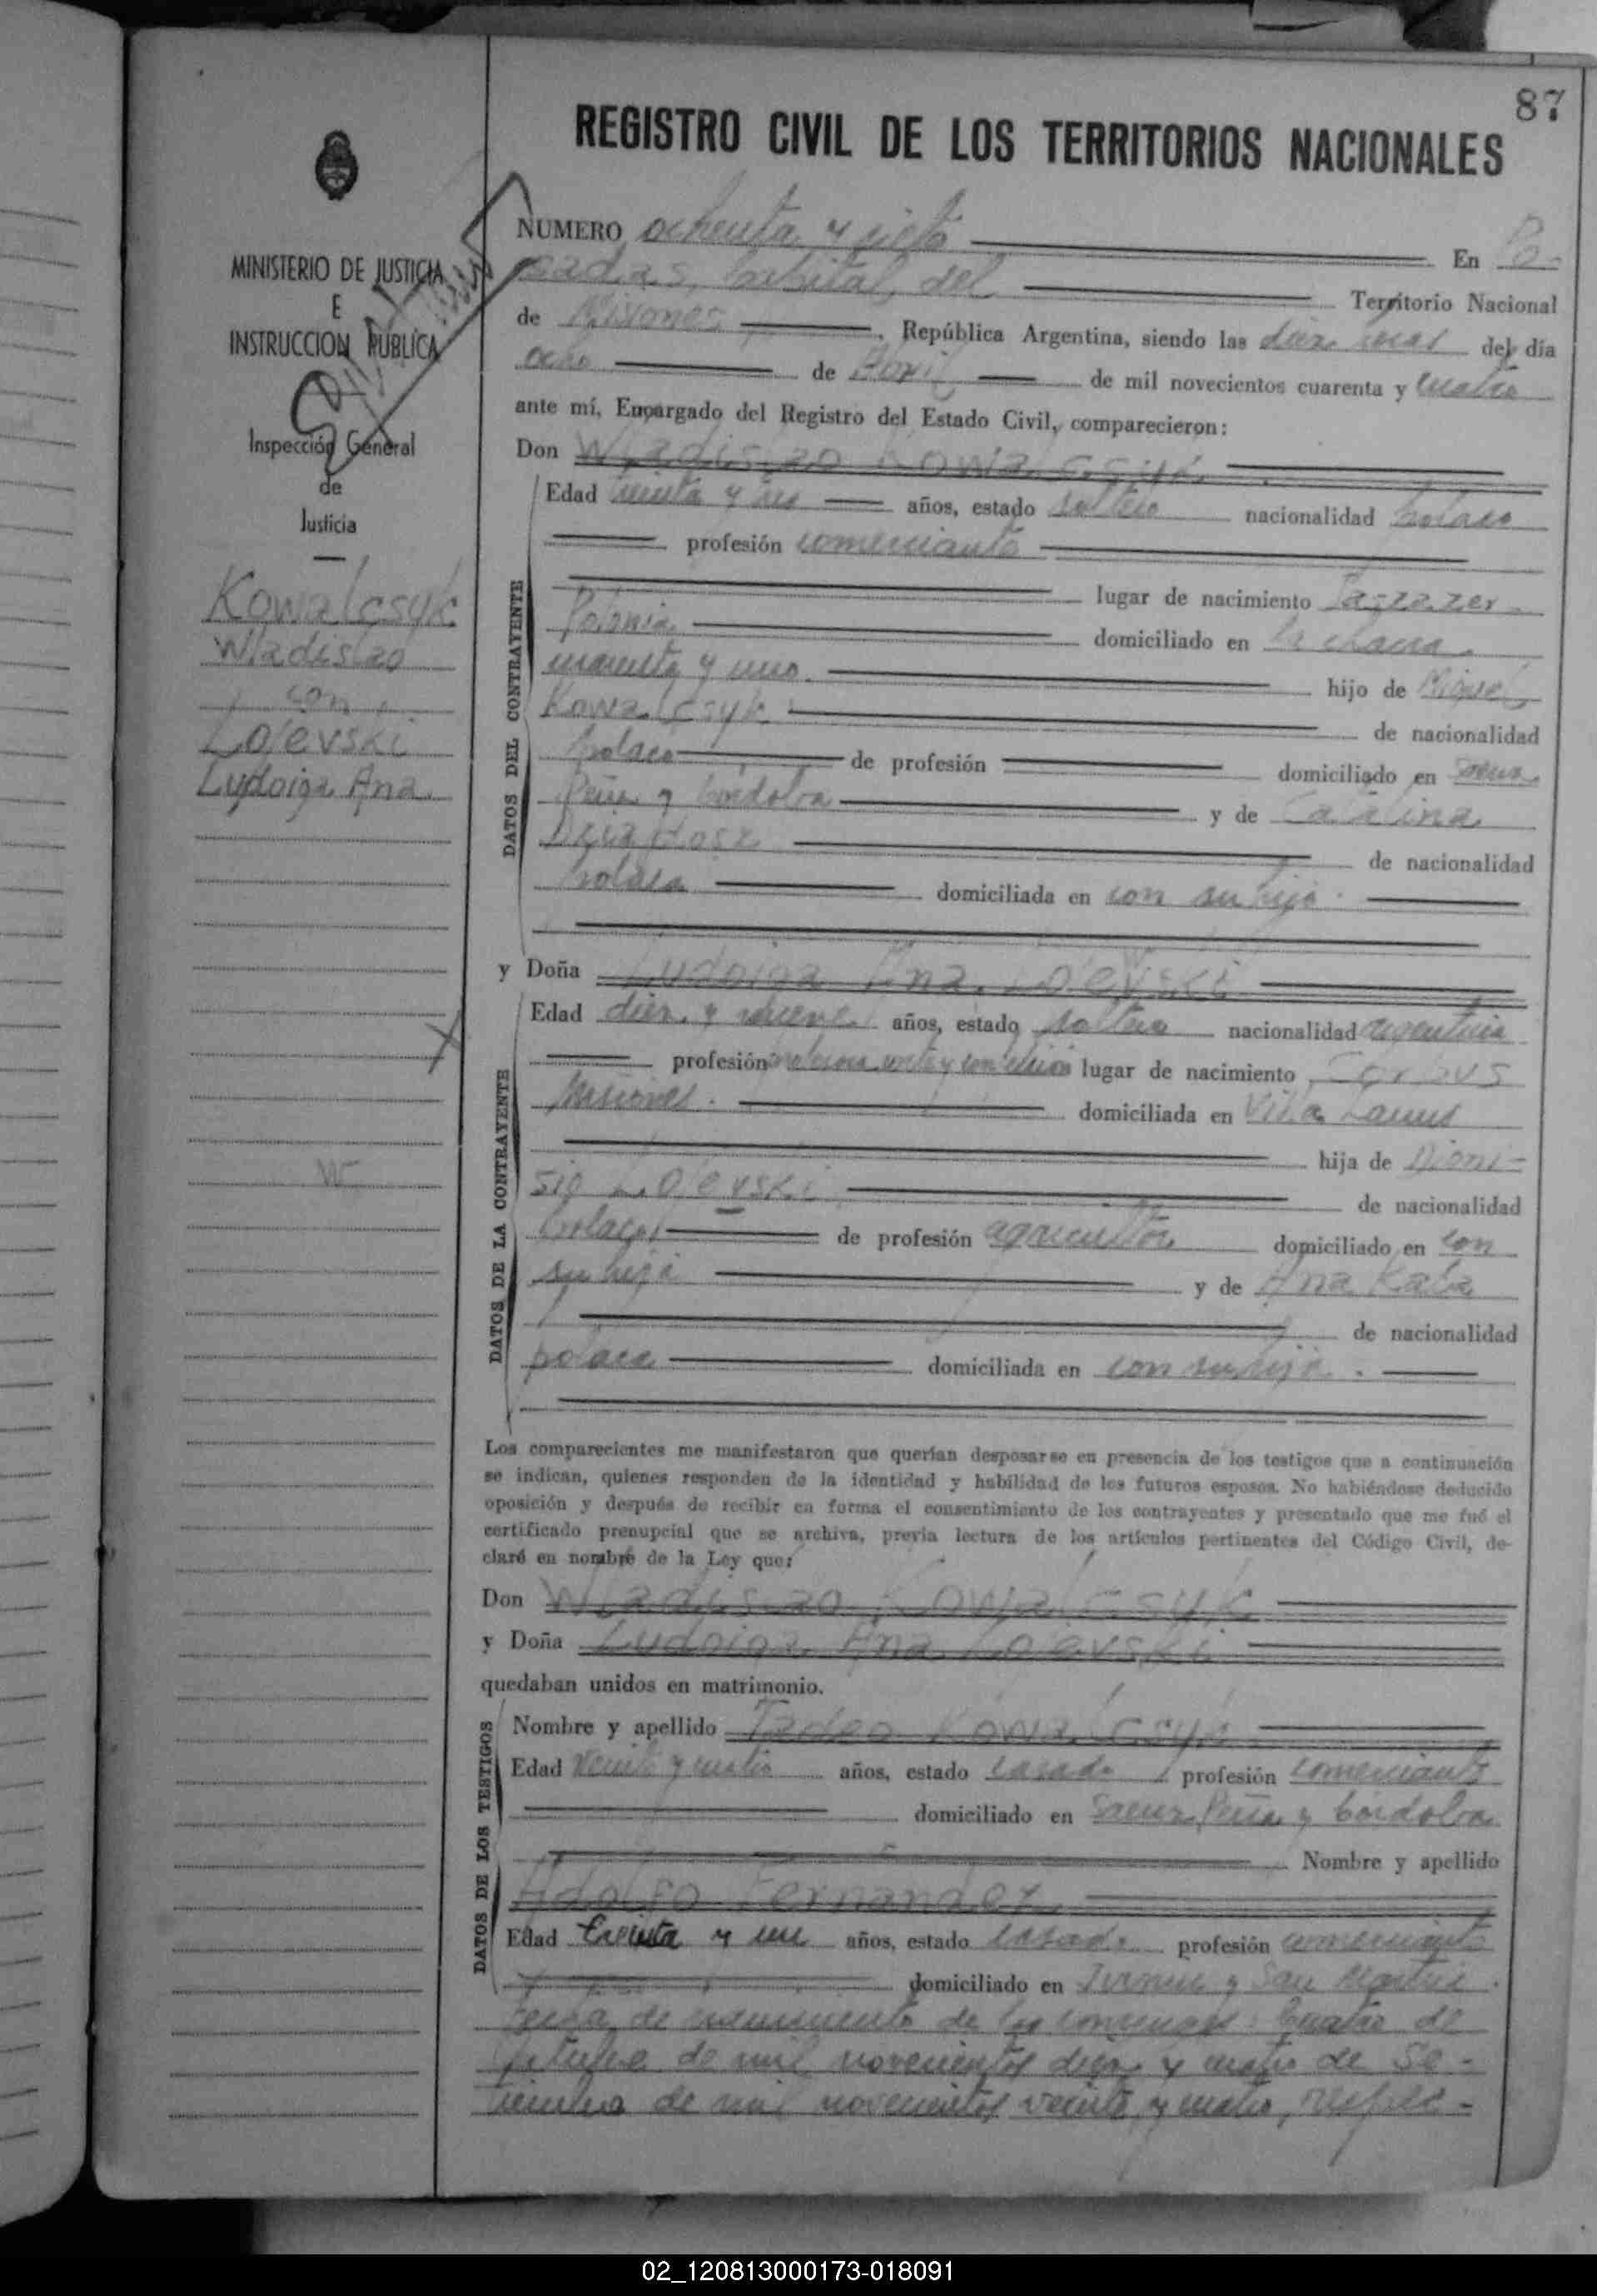 87
REGISTRO CIVIL DE LOS TERRITORIOS NACIONALES
MINISTERIO DE JUSTICIA
E
INSTRUCCION PUBLICA
Inspección General
de
Justicia
Kowalcsyk
Wladislao
con
Lojevski
Ludoiga Ana
W
NUMERO ochenta y siete En Po-
sadas, Capital del Territorio Nacional
de Misiones, República Argentina, siendo las diez horas del día
ocho de Abril de mil novecientos cuarenta y cuatro
ante mí, Encargado del Registro del Estado Civil, comparecieron:
Don Wladislao Kowalcsyk
DATOS DEL CONTRAYENTE
Edad treinta y tres años, estado soltero nacionalidad polaco
profesión comerciante
lugar de nacimiento
Polonia domiciliado en la chacra
cuarenta y uno. hijo de Miguel
Kowalcsyk de nacionalidad
polaco de profesión domiciliado en Saenz
Peña y Córdoba y de Catalina
de nacionalidad
polaca domiciliada en con su hijo.
y Doña Ludoiga Ana Lojevski
DATOS DE LA CONTRAYENTE
Edad diez y nueve años, estado soltera nacionalidad argentina
profesión profesora corte y confección lugar de nacimiento Corpus
Misiones. domiciliada en Villa Lanus
hija de Dioni-
sio Lojevski de nacionalidad
polaco de profesión agricultor domiciliado en con
su hija y de Ana
de nacionalidad
polaca domiciliada en con su hija.
Los comparecientes me manifestaron que querían desposarse en presencia de los testigos que a continuación
se indican, quienes responden de la identidad y habilidad de los futuros esposos. No habiéndose deducido
oposición y después de recibir en forma el consentimiento de los contrayentes y presentado que me fué el
certificado prenupcial que se archiva, previa lectura de los artículos pertinentes del Código Civil, de-
claré en nombre de la Ley que:
Don Wladislao Kowalcsyk
y Doña Ludoiga Ana Lojevski
quedaban unidos en matrimonio.
DATOS DE LOS TESTIGOS
Nombre y apellido Tadeo Kowalcsyk
Edad veinte y cuatro años, estado casado profesión comerciante
domiciliado en Saenz Peña y Córdoba
Nombre y apellido
Adolfo Fernandez
Edad treinta y un años, estado casado profesión comerciante
domiciliado en y San Martin.
Fecha de nacimiento de los conyuges: Cuatro de
de mil novecientos diez y cuatro de Se-
tiembre de mil novecientos veinte y cuatro, respec-
02_120813000173-018091